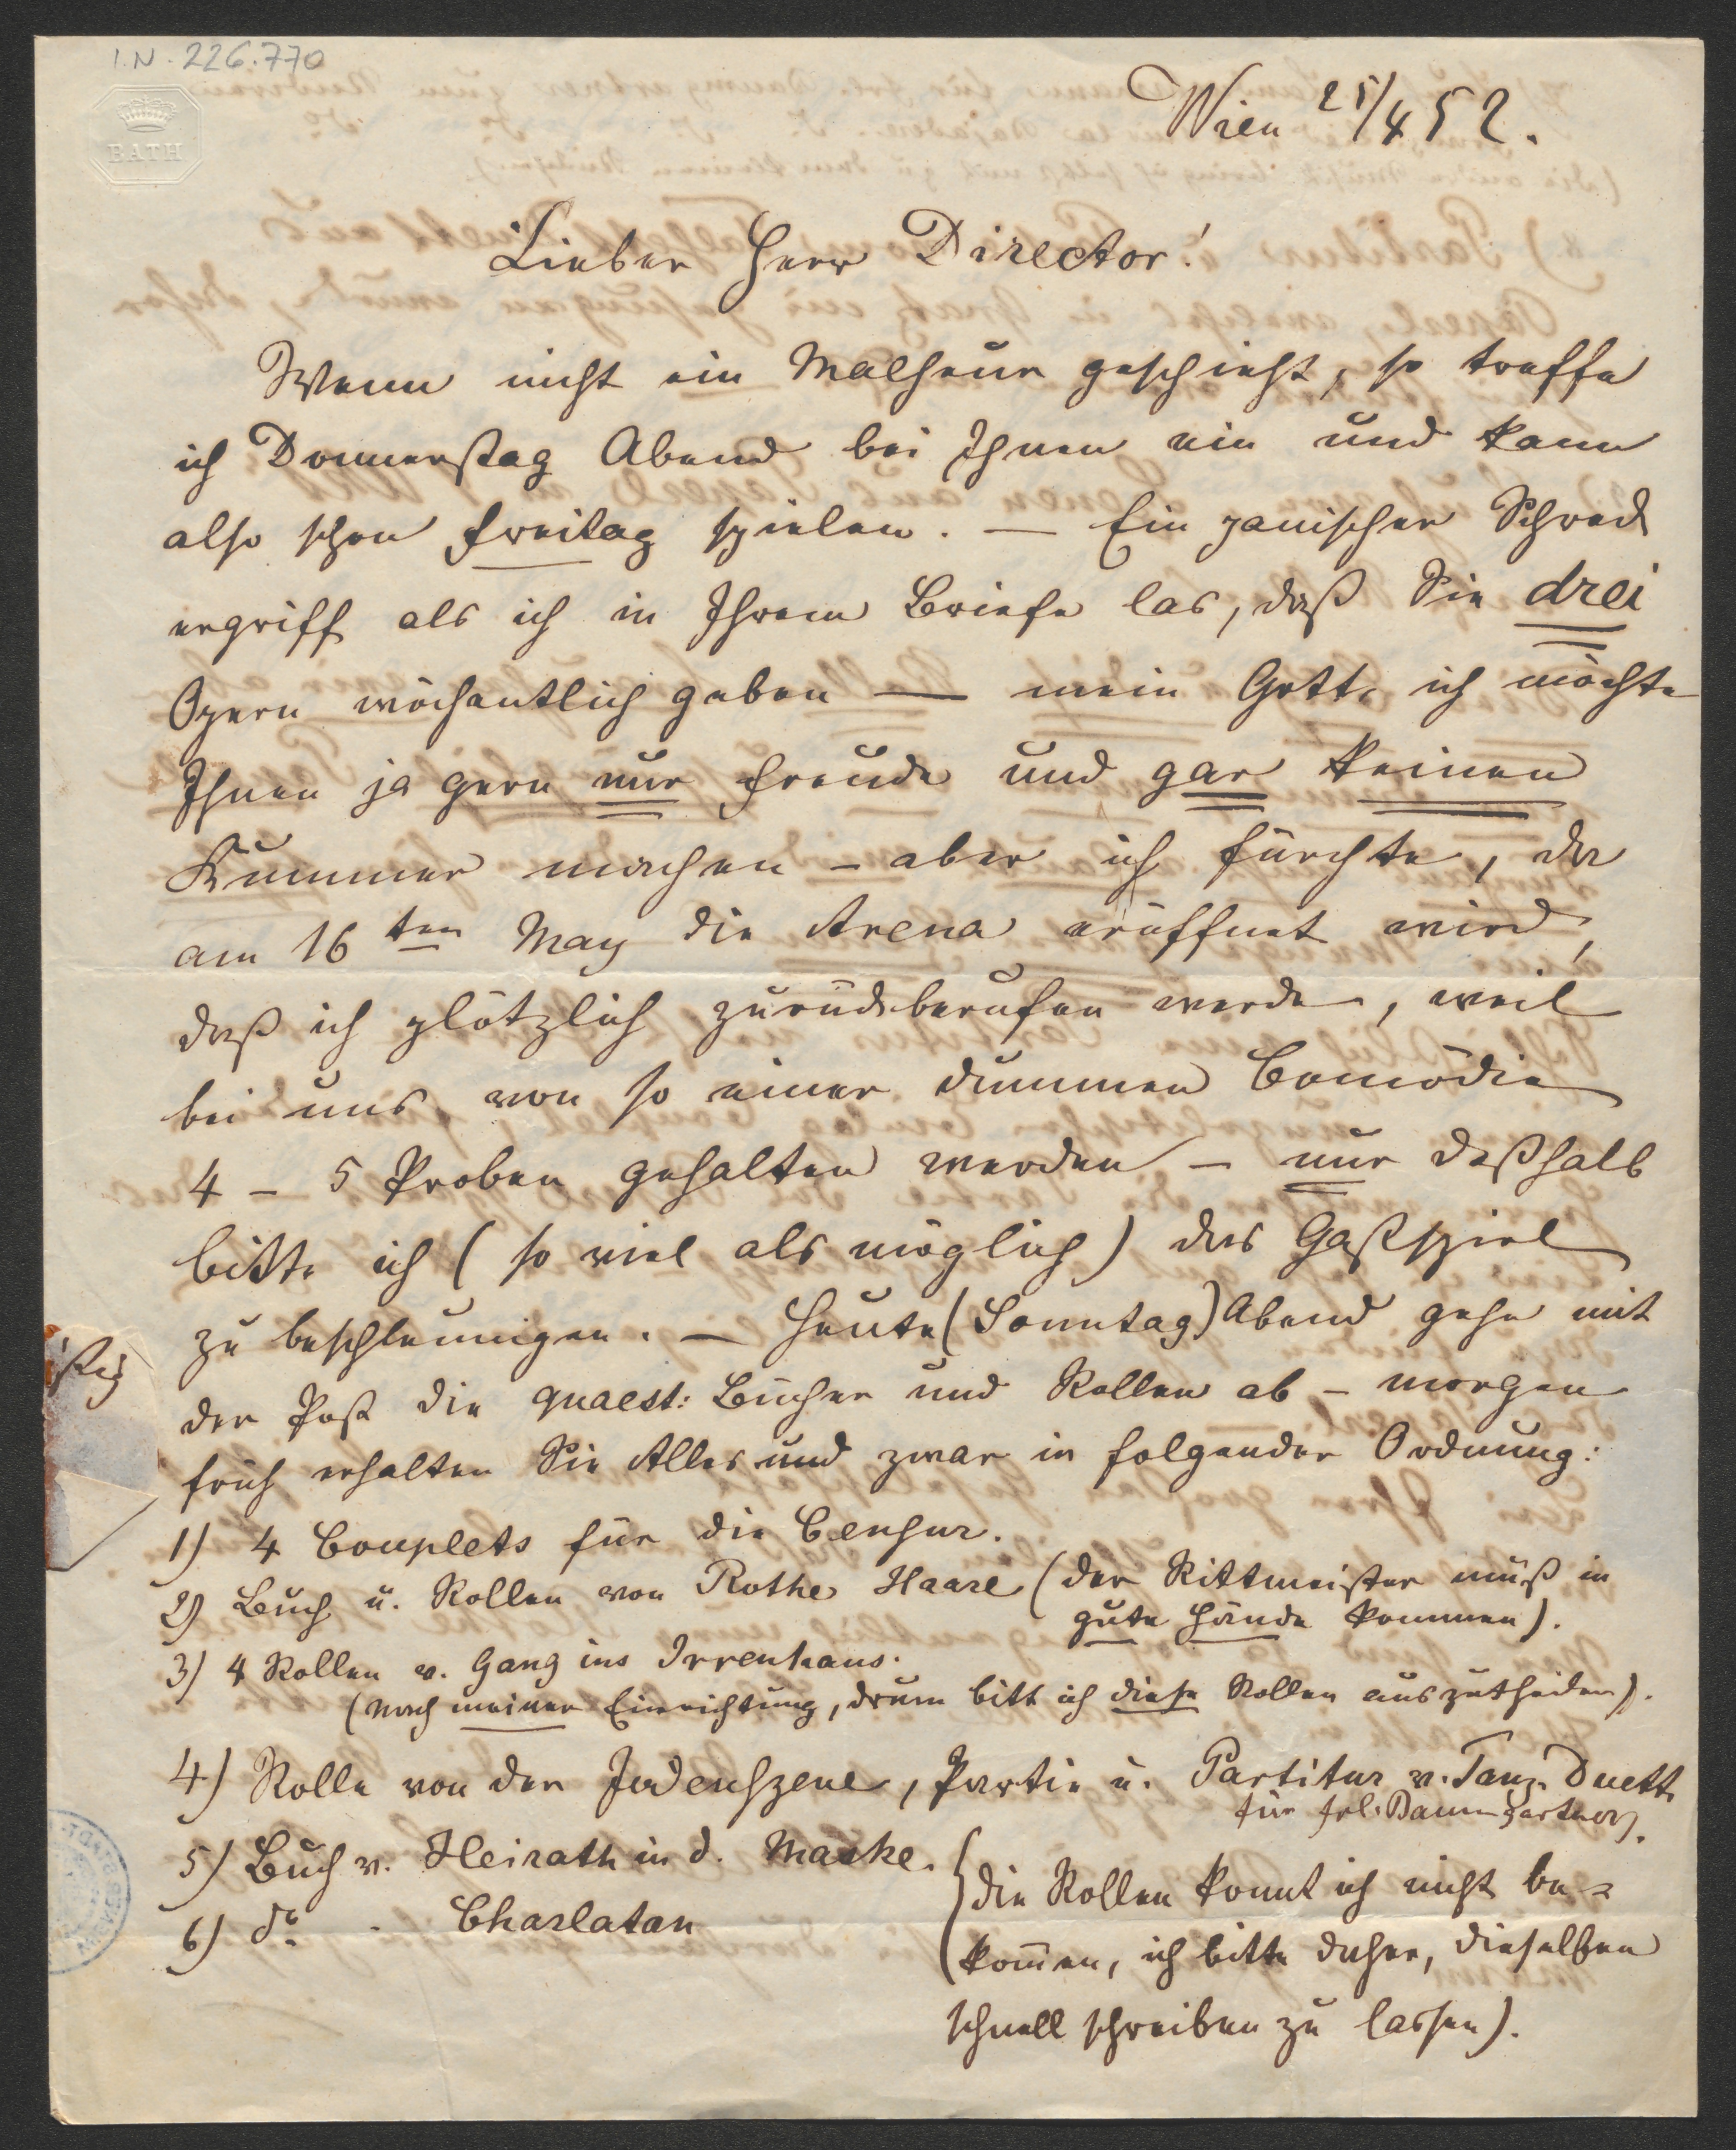 I.N. 226.770
BATH
Wien 25/4 52.
Lieber Herr Director!
Wenn nicht ein Malheur geschieht, so treffe
ich Donnerstag Abend bei Ihnen ein und kann
also schon Freitag spielen. — Ein panischer Schreck
ergriff als ich in Ihrem Briefe las, daß Sie drei
Opern wöchentlich geben — mein Gott, ich möchte
Ihnen ja gern nur Freude und gar keinen
Kummer machen – aber ich fürchte, da
am 16ten May die Arena eröffnet wird,
daß ich plötzlich zurückberufen werde, weil
bei uns von so einer dummen Comödie
4 – 5 Proben gehalten werden – nur deßhalb
bitte ich (so viel als möglich) das Gastspiel
zu beschleunigen. — Heute (Sonntag) Abend gehe mit
der Post die quaest: Bücher und Rollen ab – morgen
früh erhalten Sie Alles und zwar in folgender Ordnung:
1) 4 Couplets für die Censur.
2) Buch u. Rollen von Rothe Haare (der Rittmeister muß in
gute Hände kommen).
3) 4 Rollen v. Gang ins Irrenhaus.
(nach meiner Einrichtung, drum bitt ich diese Rollen auszutheilen).
4) Rolle von der Judenszene, Partie u. Partitur v. Tanz-Duett
für Frl. Baumgartner.
5) Buch v. Heirath in d. Maske.
6) do - Charlatan
(die Rollen konnt ich nicht be-
kom̅en, ich bitte daher, dieselben
schnell schreiben zu lassen).